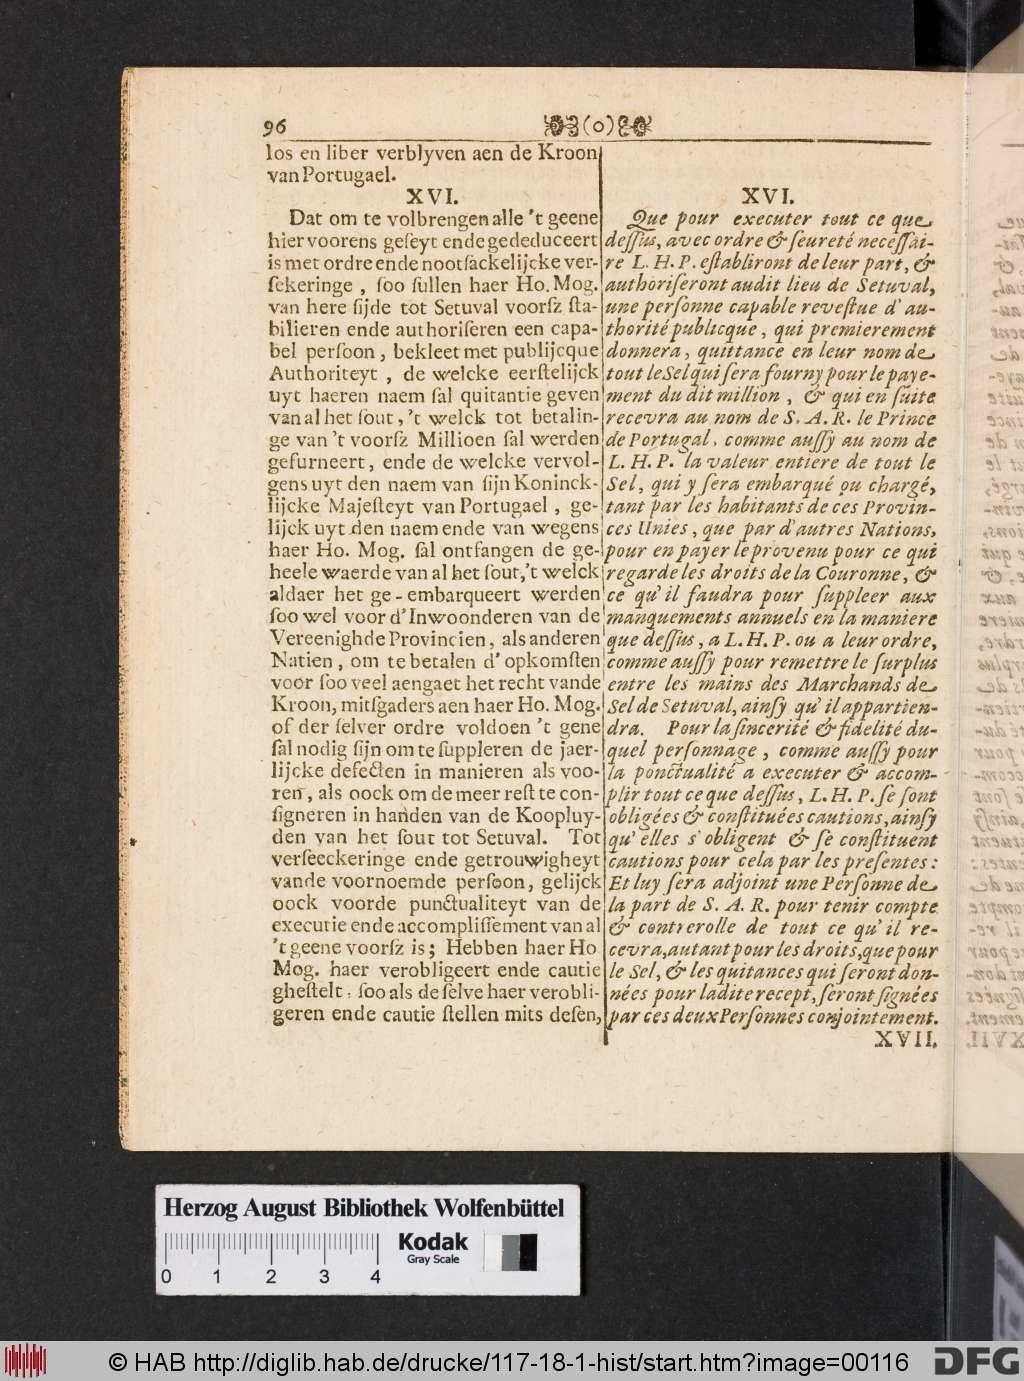 96 (o)
los en liber verblyven aen de Kroon
van Portugael.
XVI.
Dat om te volbrengen alle 't geene
hier voorens geſeyt ende gededuceert
is met ordre ende nootſackelijcke ver-
ſekeringe, ſoo ſullen haer Ho. Mog.
van here ſijde tot Setuval voorſz ſta-
bilieren ende authoriſeren een capa-
bel perſoon, bekleet met publijcque
Authoriteyt, de welcke eerſtelijck
uyt haeren naem ſal quitantie geven
van al het ſout, 't welck tot betalin-
ge van 't voorſz Millioen ſal werden
gefurneert, ende de welcke vervol-
gens uyt den naem van ſijn Koninck-
lijcke Majeſteyt van Portugael, ge-
lijck uyt den naem ende van wegens
haer Ho. Mog. ſal ontfangen de ge-
heele waerde van al het ſout, 't welck
aldaer het ge-embarqueert werden
ſoo wel voor d' Inwoonderen van de
Vereenighde Provincien, als anderen
Natien, om te betalen d' opkomſten
voor ſoo veel aengaet het recht vande
Kroon, mitſgaders aen haer Ho. Mog.
of der ſelver ordre voldoen 't gene
ſal nodig ſijn om te ſuppleren de jaer-
lijcke defecten in manieren als voo-
ren, als oock om de meer reſt te con-
ſigneren in handen van de Koopluy-
den van het ſout tot Setuval. Tot
verſeeckeringe ende getrouwigheyt
vande voornoemde perſoon, gelijck
oock voorde punctualiteyt van de
executie ende accompliſſement van al
't geene voorſz is; Hebben haer Ho
Mog. haer verobligeert ende cautie
gheſtelt, ſoo als de ſelve haer verobli-
geren ende cautie ſtellen mits deſen,
XVI.
Que pour executer tout ce que
deſſus, avec ordre & ſeureté neceſſai-
re L. H. P. eſtabliront de leur part, &
authoriſeront audit lieu de Setuval,
une perſonne capable reveſtue d'au-
thorité publicque, qui premierement
donnera, quittance en leur nom de
tout le Sel qui ſera fourny pour le paye-
ment du dit million, & qui en ſuite
recevra au nom de S. A. R. le Prince
de Portugal, comme auſſy au nom de
L. H. P. la valeur entiere de tout le
Sel, qui y ſera embarqué ou chargé,
tant par les habitants de ces Provin-
ces Unies, que par d'autres Nations,
pour en payer le provenu pour ce qui
regarde les droits de la Couronne, &
ce qu'il faudra pour ſuppleer aux
manquements annuels en la maniere
que deſſus, a L. H. P. ou a leur ordre,
comme auſſy pour remettre le ſurplus
entre les mains des Marchands de
Sel de Setuval, ainſy qu'il appartien-
dra. Pour la ſincerité & fidelité du-
quel perſonnage, comme auſſy pour
la ponctualité a executer & accom-
plir tout ce que deſſus, L. H. P. ſe ſont
obligées & conſtituées cautions, ainſy
qu'elles s'obligent & ſe conſtituent
cautions pour cela par les preſentes:
Et luy ſera adjoint une Perſonne de
la part de S. A. R. pour tenir compte
& contrerolle de tout ce qu'il re-
cevra, autant pour les droits, que pour
le Sel, & les quitances qui ſeront don-
nées pour ladite recept, ſeront ſignées
par ces deux Perſonnes conjointement.
XVII.
Herzog August Bibliothek Wolfenbüttel
Kodak
Gray Scale
0 1 2 3 4
© HAB http://diglib.hab.de/drucke/117-18-1-hist/start.htm?image=00116
DFG